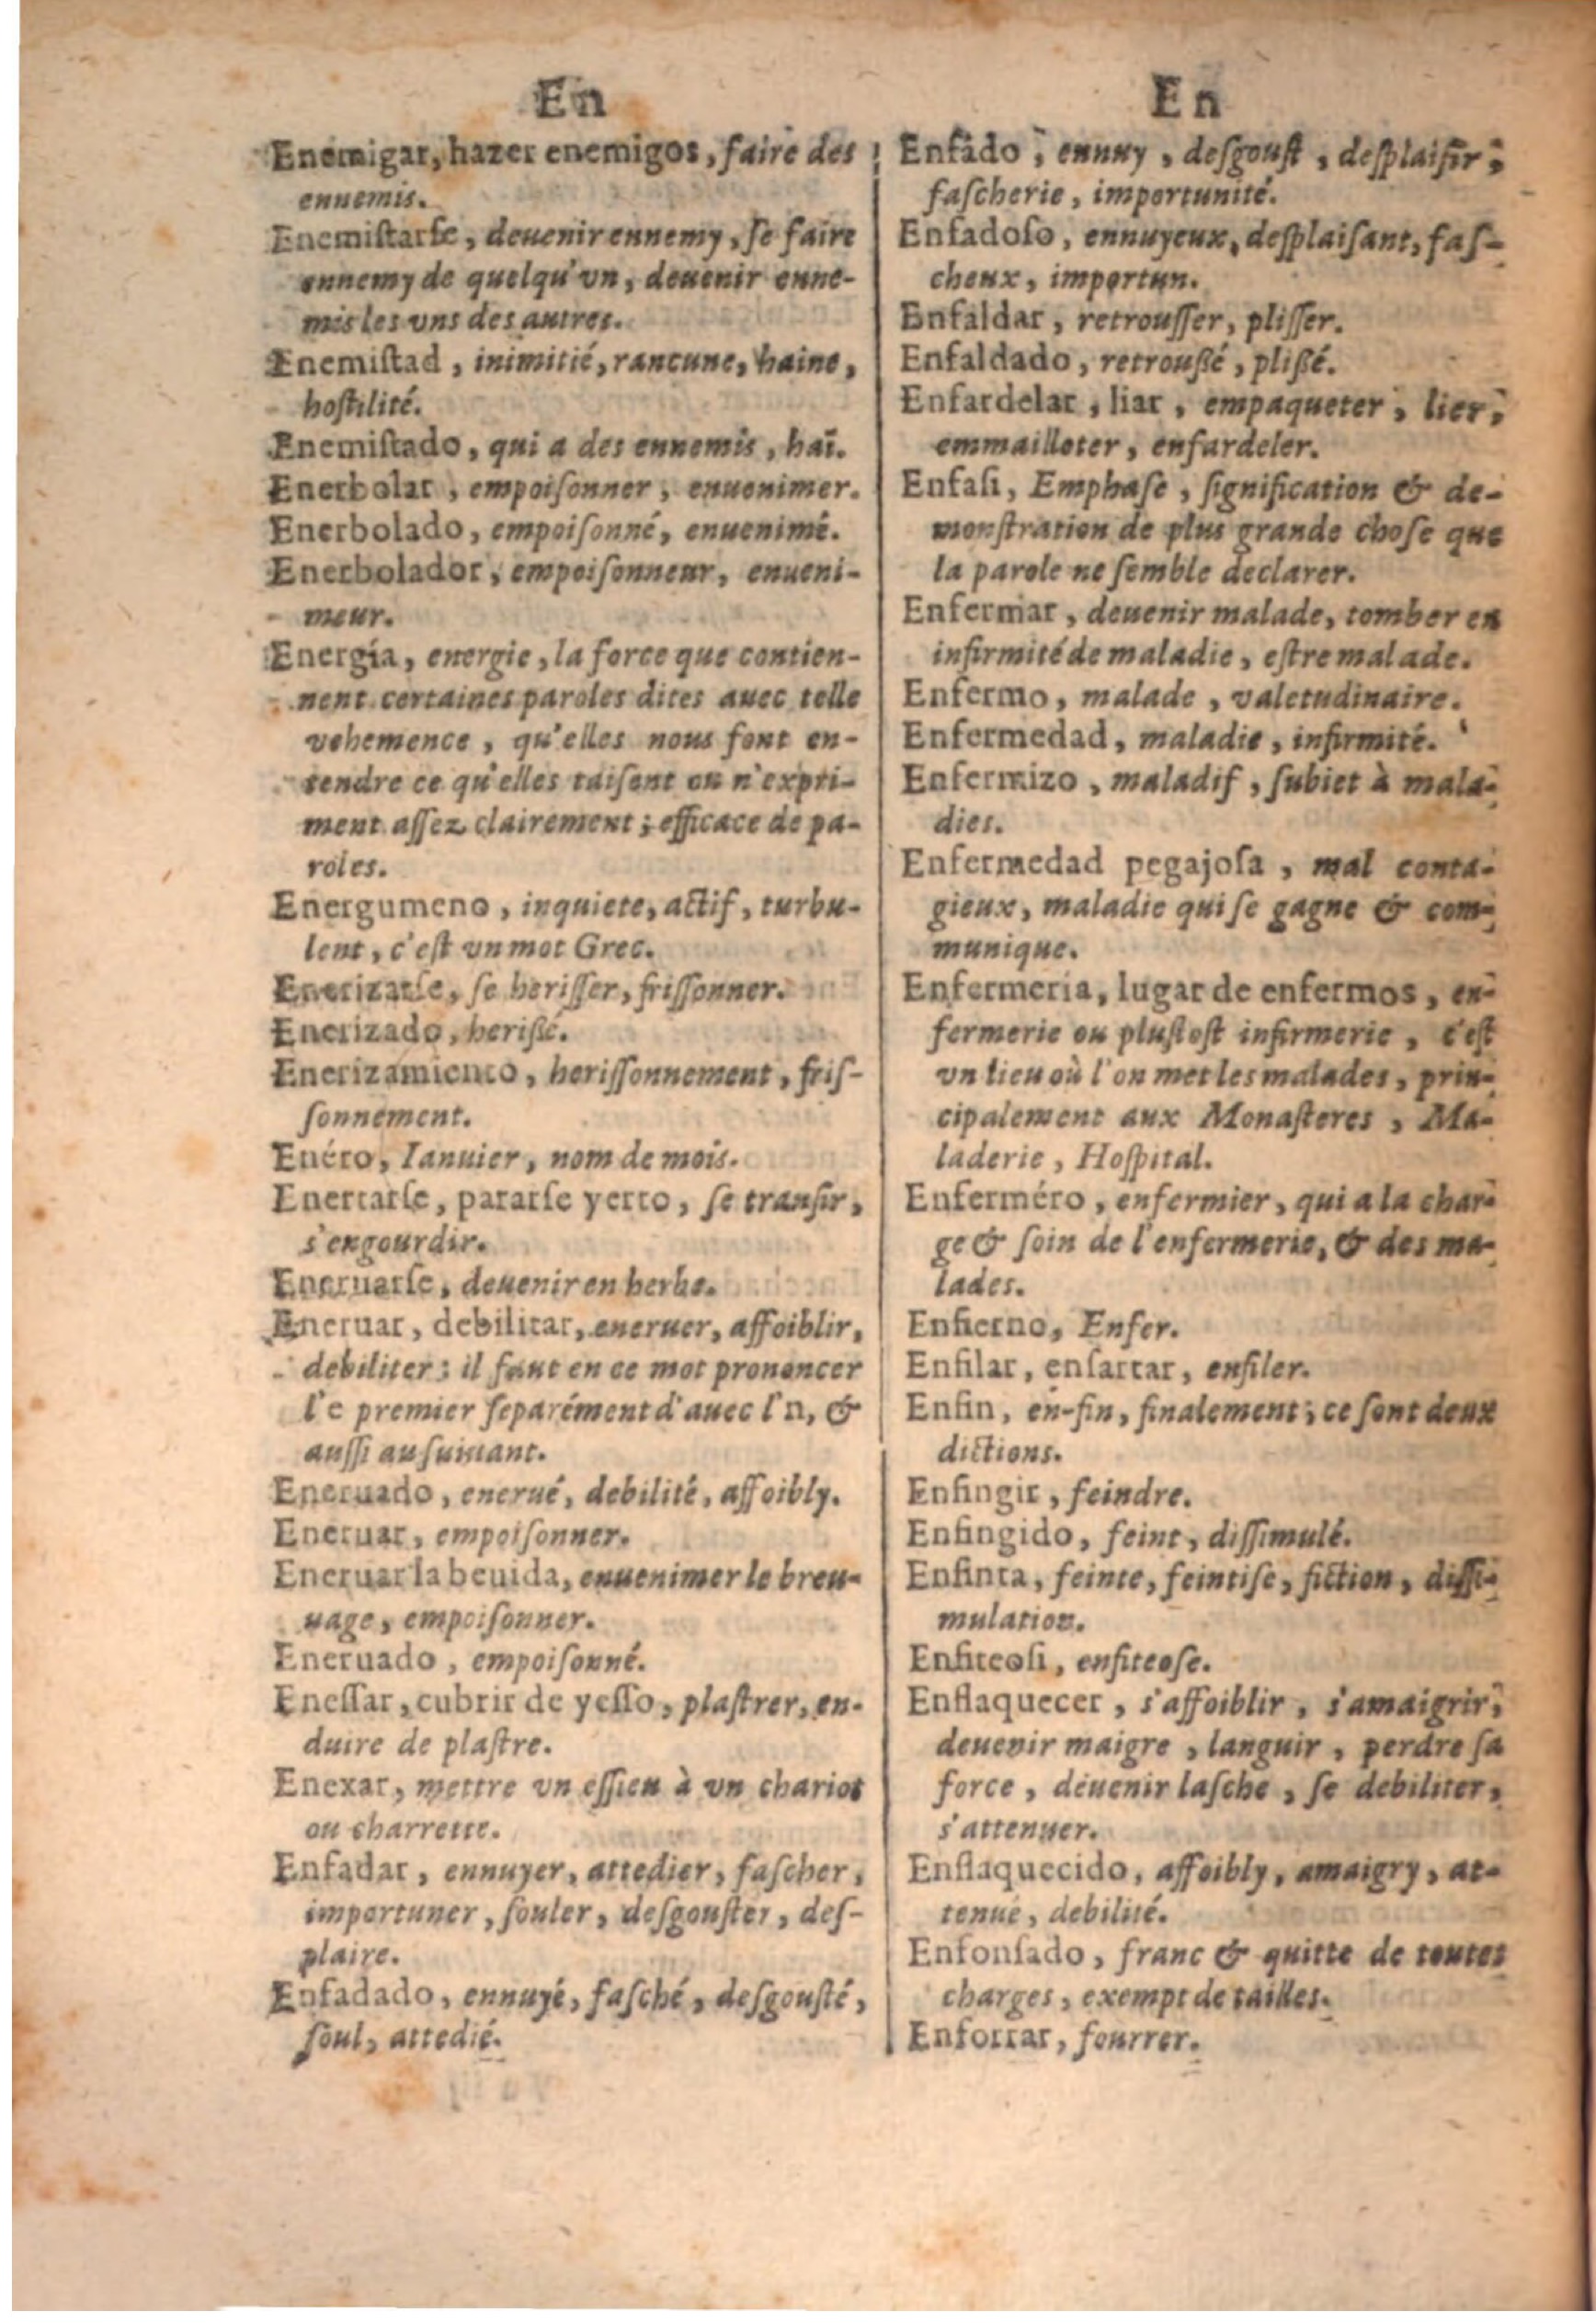 En
Enemigar, hazer enemigos, faire des
ennemis.
Enemiſtarſe, deuenir ennemy, ſe faire
ennemy de quelqu'vn, deuenir enne-
mis les vns des autres.
Enemiſtad, inimitié, rancune, haine,
hoſtilité.
Enemiſtado, qui a des ennemis, haï.
Enerbolar, empoiſonner, enuenimer.
Enerbolado, empoiſonné, enuenimé.
Enerbolador, empoiſonneur, enueni-
meur.
Energía, energie, la force que contien-
nent certaines paroles dites auec telle
vehemence, qu'elles nous font en-
tendre ce qu'elles taiſent ou n'expri-
ment aſſez clairement; efficace de pa-
roles.
Energumeno, inquiete, actif, turbu-
lent, c'eſt vn mot Grec.
Enerizarſe, ſe heriſſer, friſſonner.
Enerizado, herißé.
Enerizamiento, heriſſonnement, friſ-
ſonnement.
Enéro, Ianuier, nom de mois.
Enertarſe, pararſe yerto, ſe tranſir,
s'engourdir.
Eneruarſe, deuenir en herbe.
Eneruar, debilitar, eneruer, affoiblir,
debiliter: il faut en ce mot prononcer
l'e premier ſeparément d'auec l'n, &
auſſi au ſuiuant.
Eneruado, enerué, debilité, affoibly.
Eneruar, empoiſonner.
Eneruar la beuida, enuenimer le breu-
uage, empoiſonner.
Eneruado, empoiſonné.
Eneſſar, cubrir de yeſſo, plaſtrer, en-
duire de plaſtre.
Enexar, mettre vn eſſieu à vn chariot
ou charrette.
Enfadar, ennuyer, attedier, faſcher,
importuner, ſouler, deſgouſter, deſ-
plaire.
Enfadado, ennuyé, faſché, deſgouſté,
ſoul, attedié.
En
Enfádo, ennuy, deſgouſt, deſplaiſir,
faſcherie, importunité.
Enfadoſo, ennuyeux, deſplaiſant, faſ-
cheux, importun.
Enfaldar, retrouſſer, pliſſer.
Enfaldado, retroußé, plißé.
Enfardelar, liar, empaqueter, lier,
emmailloter, enfardeler.
Enfaſi, Emphaſe, ſignification & de-
monſtration de plus grande choſe que
la parole ne ſemble declarer.
Enfermar, deuenir malade, tomber en
infirmité de maladie, eſtre malade.
Enfermo, malade, valetudinaire.
Enfermedad, maladie, infirmité.
Enfermizo, maladif, ſubiet à mala-
dies.
Enfermedad pegajoſa, mal conta-
gieux, maladie qui ſe gagne & com-
munique.
Enfermeria, lugar de enfermos, en-
fermerie ou pluſtoſt infirmerie, c'eſt
vn lieu où l'on met les malades, prin-
cipalement aux Monaſteres, Ma-
laderie, Hoſpital.
Enferméro, enfermier, qui a la char-
ge & ſoin de l'enfermerie, & des ma-
lades.
Enfierno, Enfer.
Enfilar, enſartar, enfiler.
Enfin, en-fin, finalement; ce ſont deux
dictions.
Enfingir, feindre.
Enfingido, feint, diſſimulé.
Enfinta, feinte, feintiſe, fiction, diſſi-
mulation.
Enfiteoſi, enfiteoſe.
Enflaquecer, s'affoiblir, s'amaigrir,
deuenir maigre, languir, perdre ſa
force, deuenir laſche, ſe debiliter,
s'attenuer.
Enflaquecido, affoibly, amaigry, at-
tenué, debilité.
Enfonſado, franc & quitte de toutes
charges, exempt de tailles.
Enforrar, fourrer.